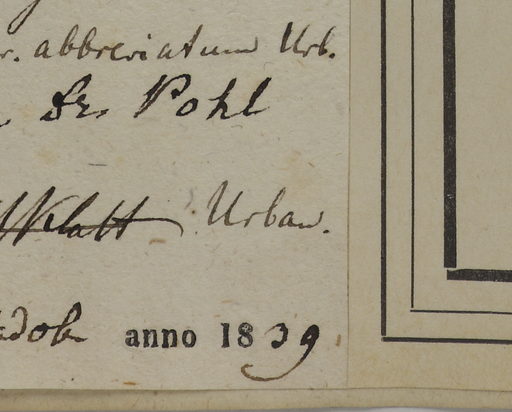 r. abbreviatum Urb.
Dr. Pohl
Klatt Urban.
anno 1839